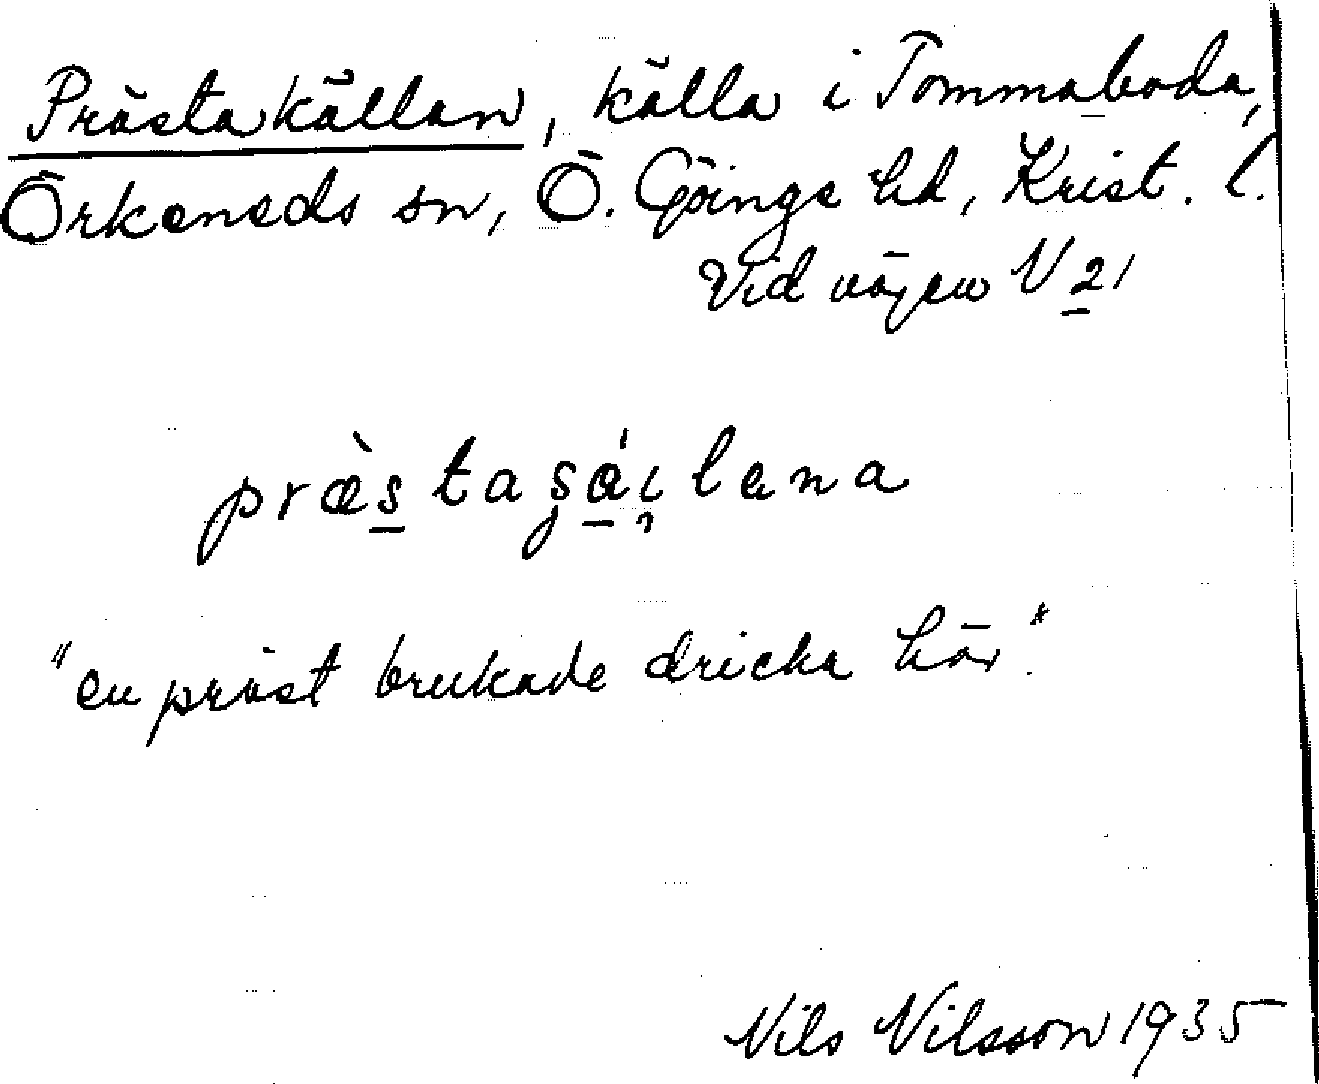 Prästakällan, källa i Tommaboda,
Örkeneds sn, Ö. Göinge hd, Krist. l.
Vid vägen V 21
præ̀staşái̯lena
"en präst brukade dricka här."
Nils Nilsson 1935